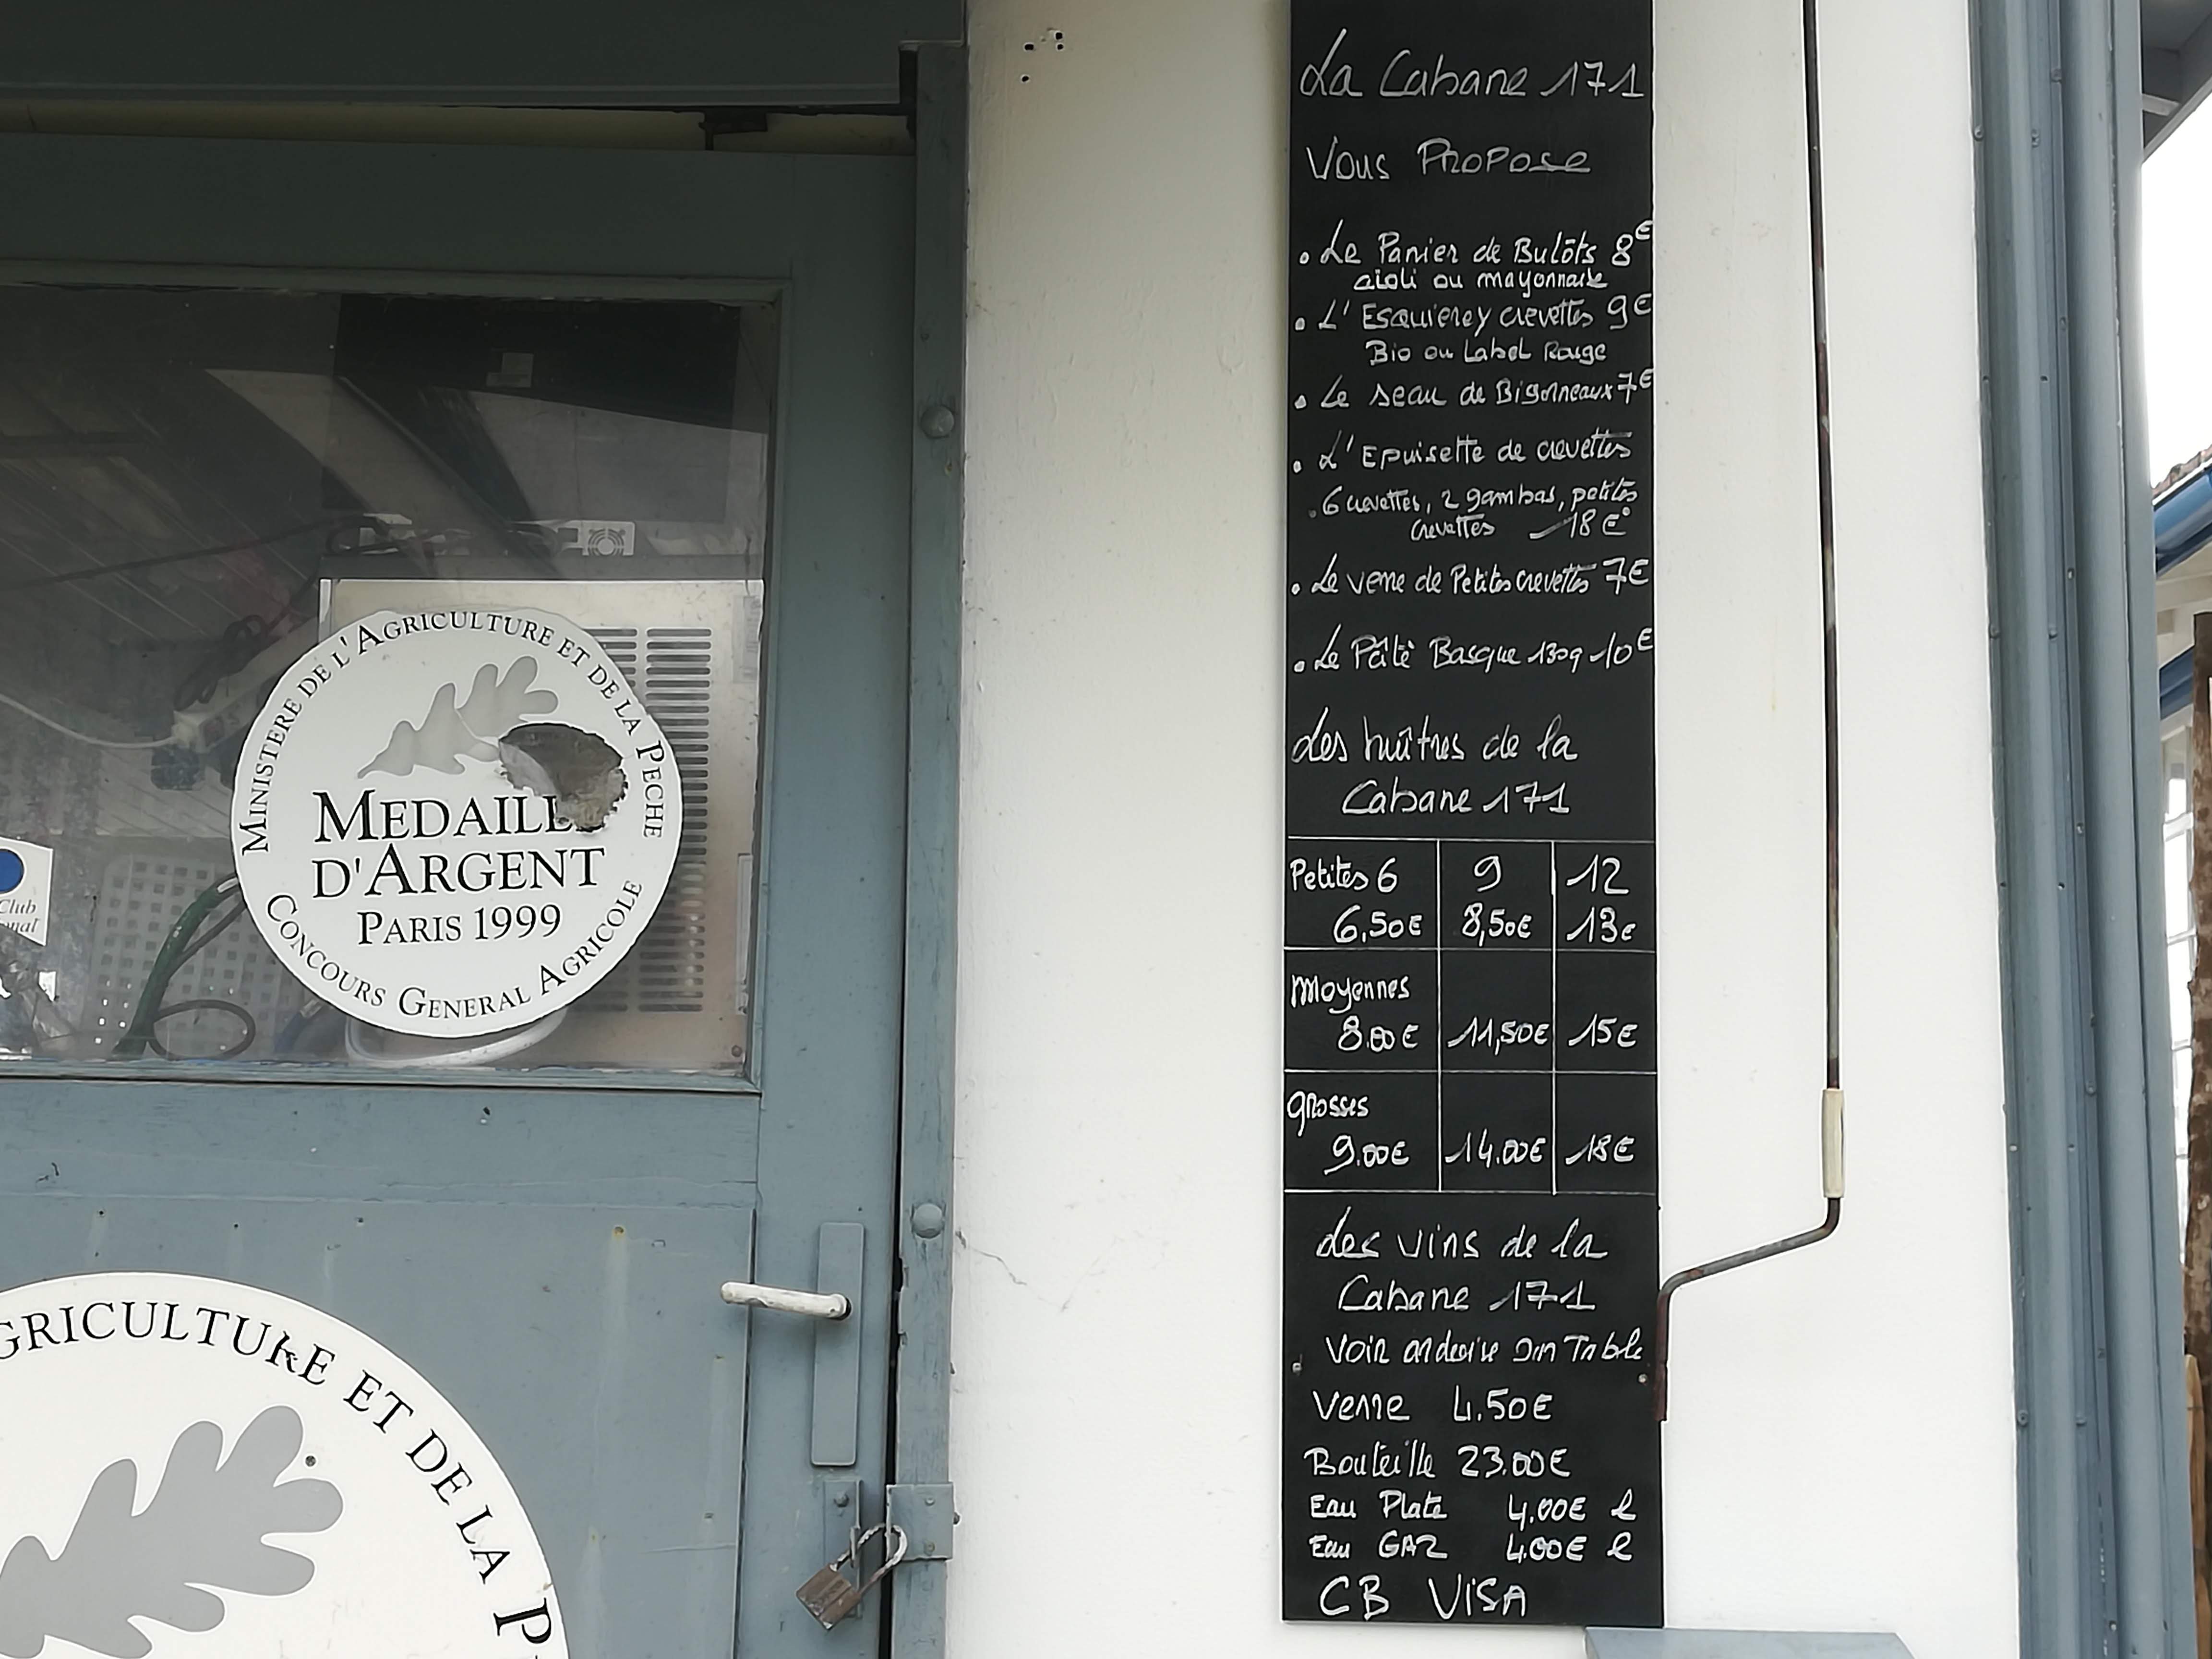 MINISTERE DE L'AGRICULTURE ET DE LA PECHE
MEDAILLE
D'ARGENT
PARIS 1999
CONCOURS GENERAL AGRICOLE
Club
GRICULTURE ET DE LA P
La Cabane 171
Vous Propose
• Le Panier de Bulôts 8€
aioli ou mayonnaise
• L'Esquierey crevettes 9€
Bio ou Label Rouge
• Le seau de Bigorneaux 7€
• L'Epuisette de crevettes
6 crevettes, 2 gambas, petites
crevettes 18€
• Le verre de Petites crevettes 7€
• Le Pâtè Basque 130g 10€
Les huîtres de la
Cabane 171
Petites 6 9 12
6,50€ 8,50€ 13€
Moyennes
8.00€ 11,50€ 15€
grosses
9.00€ 14.00€ 18€
Les vins de la
Cabane 171
Voir ardoise sur Table
Verre 4.50€
Bouteille 23.00€
Eau Plate 4.00€ l
Eau GAZ 4.00€ l
CB VISA